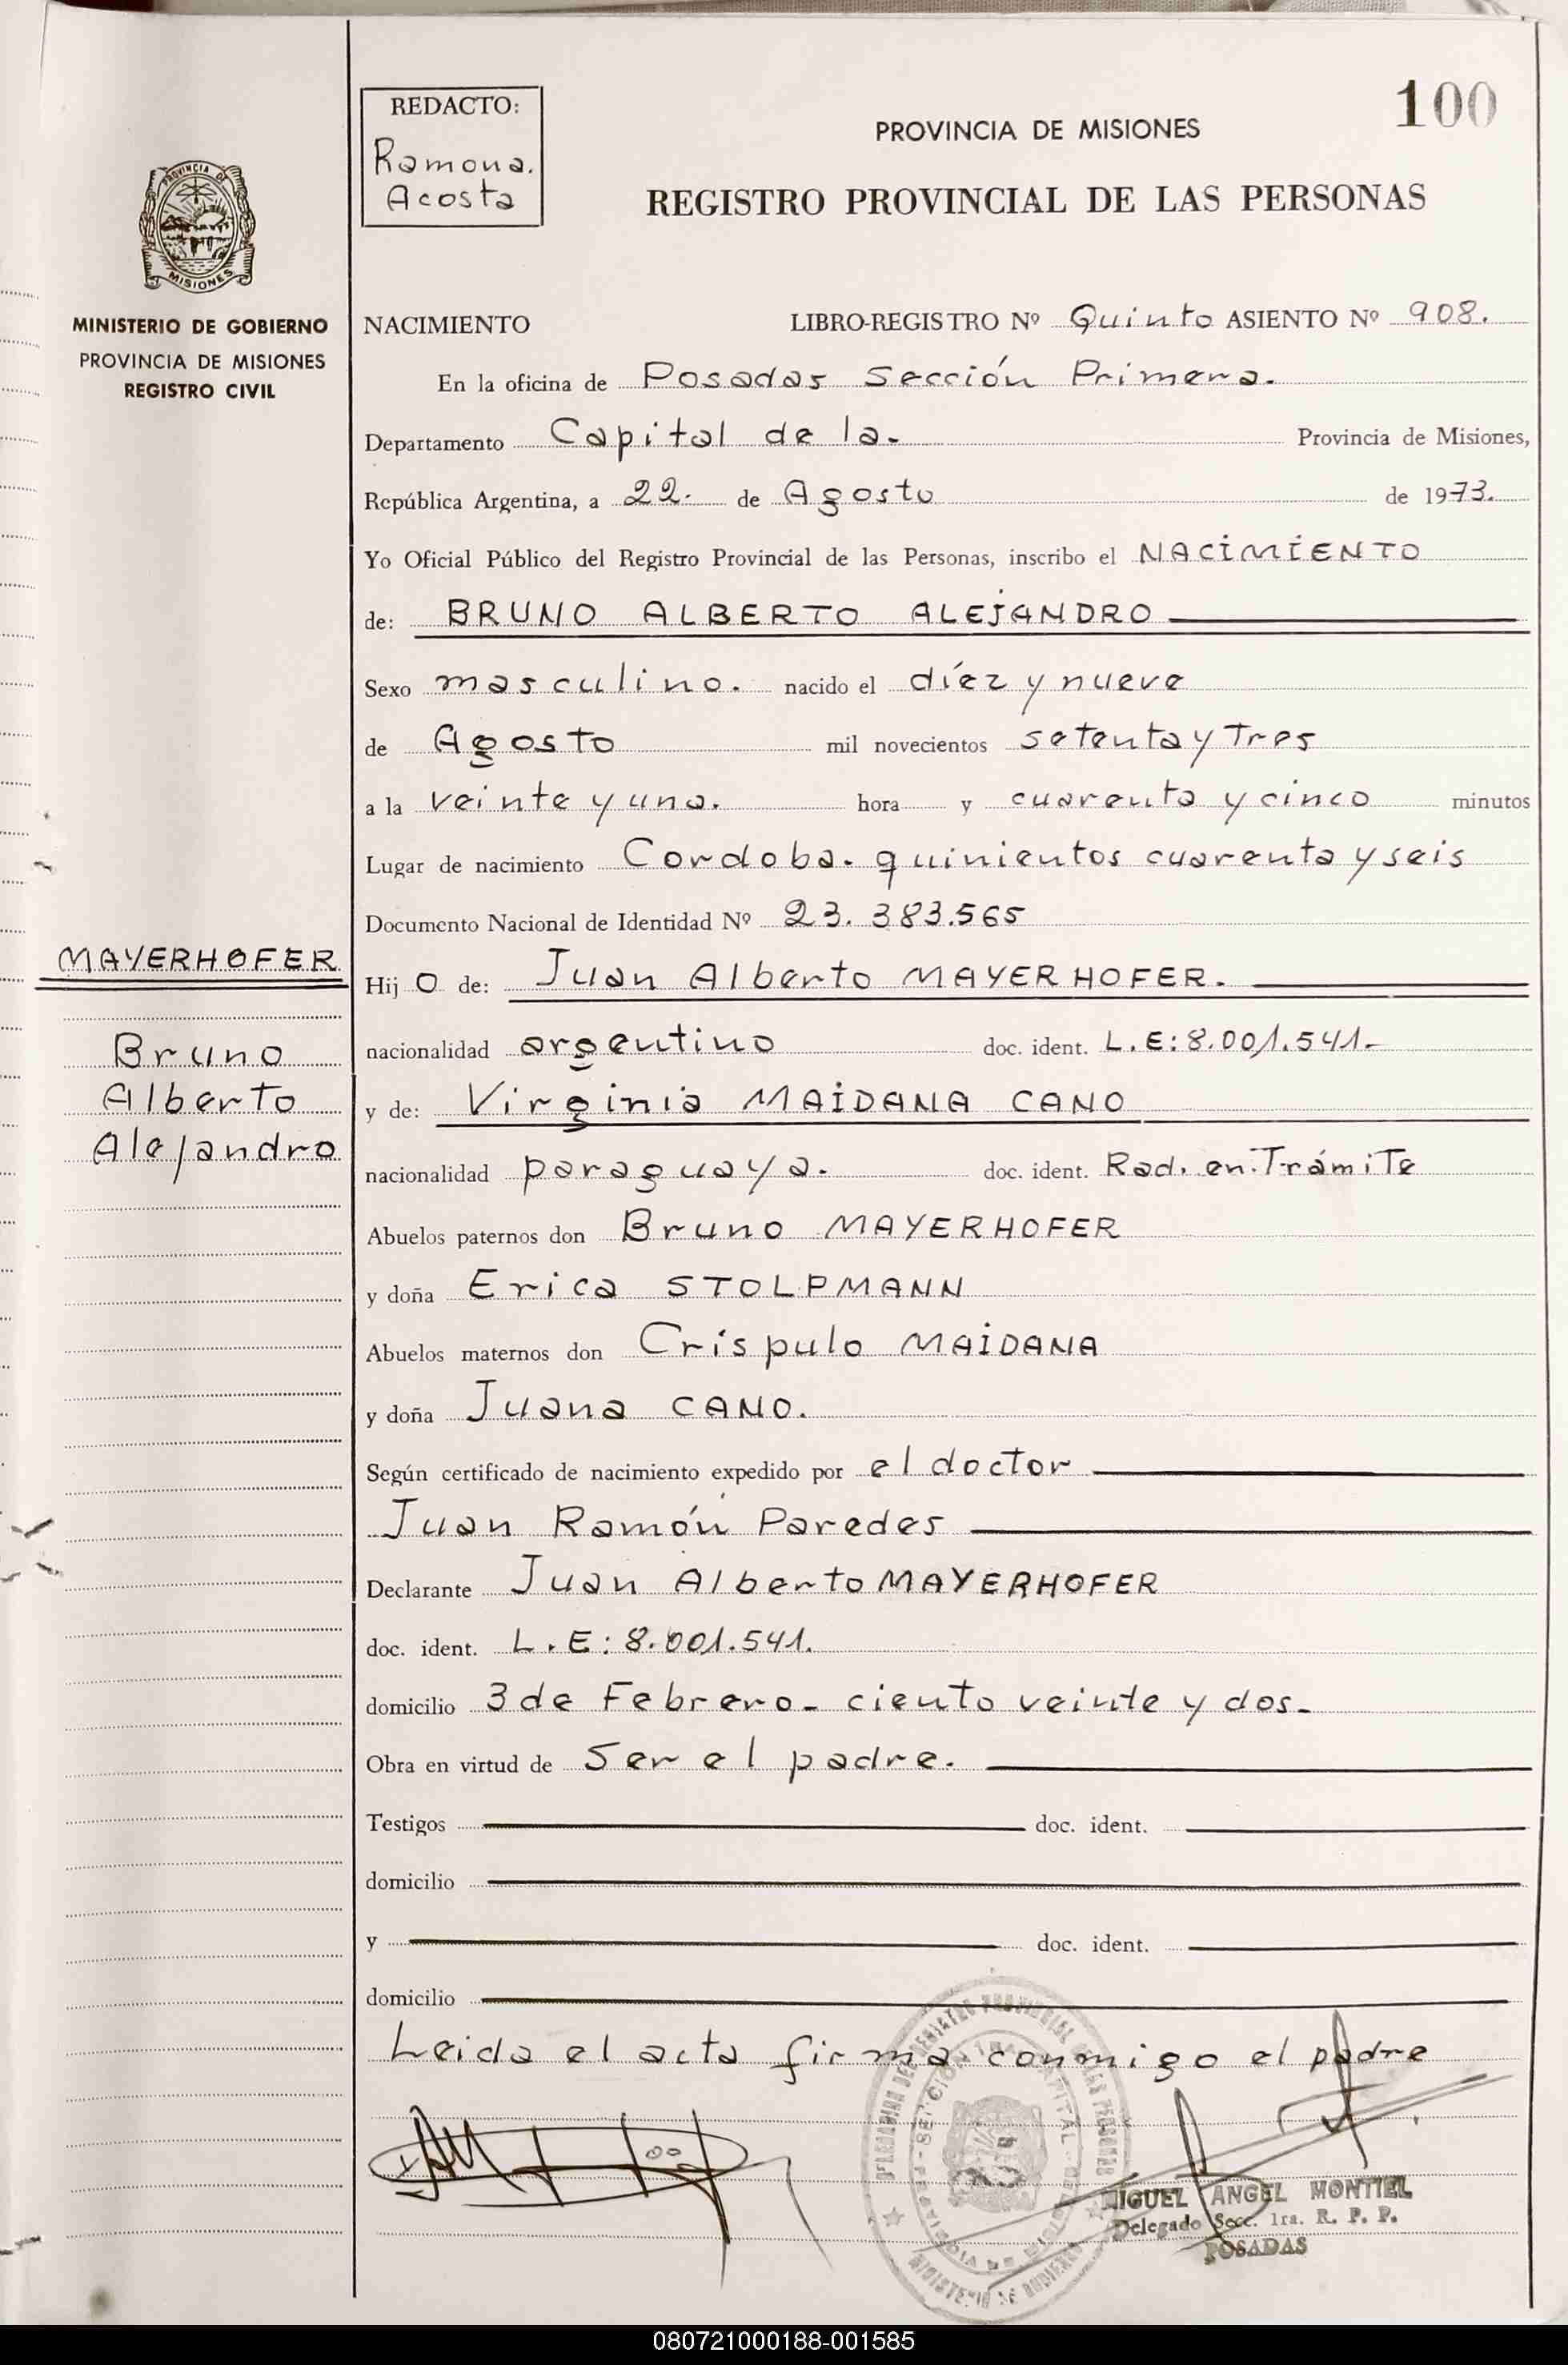 100
REDACTO:
Ramona.
Acosta
PROVINCIA DE MISIONES
REGISTRO PROVINCIAL DE LAS PERSONAS
PROVINCIA DE
MISIONES
MINISTERIO DE GOBIERNO
PROVINCIA DE MISIONES
REGISTRO CIVIL
NACIMIENTO LIBRO-REGISTRO Nº Quinto ASIENTO Nº 908.
En la oficina de Posadas Sección Primera.
Departamento Capital de la. Provincia de Misiones,
República Argentina, a 22. de Agosto de 1973.
Yo Oficial Público del Registro Provincial de las Personas, inscribo el NACIMIENTO
de: BRUNO ALBERTO ALEJANDRO
Sexo masculino. nacido el díez y nueve
de Agosto mil novecientos setenta y Tres
a la veinte y una. hora y cuarenta y cinco minutos
Lugar de nacimiento Cordoba. quinientos cuarenta y seis
Documento Nacional de Identidad Nº 23.383.565
MAYERHOFER
Hij o de: Juan Alberto MAYERHOFER.
Bruno
nacionalidad argentino doc. ident. L.E: 8.001.541.-
Alberto
y de: Virginia MAIDANA CANO
Alejandro
nacionalidad paraguaya. doc. ident. Rad. en.Trámite
Abuelos paternos don Bruno MAYERHOFER
y doña Erica STOLPMANN
Abuelos maternos don Críspulo MAIDANA
y doña Juana CANO.
Según certificado de nacimiento expedido por el doctor
Juan Ramón Paredes
Declarante Juan Alberto MAYERHOFER
doc. ident. L.E: 8.001.541.
domicilio 3 de Febrero- ciento veinte y dos.-
Obra en virtud de Ser el padre.
Testigos doc. ident.
domicilio
y doc. ident.
domicilio
Leida el acta firma conmigo el padre
MIGUEL ANGEL MONTIEL
Delegado Secc. 1ra. R. P. P.
POSADAS
MINISTERIO DE GOBIERNO
080721000188-001585